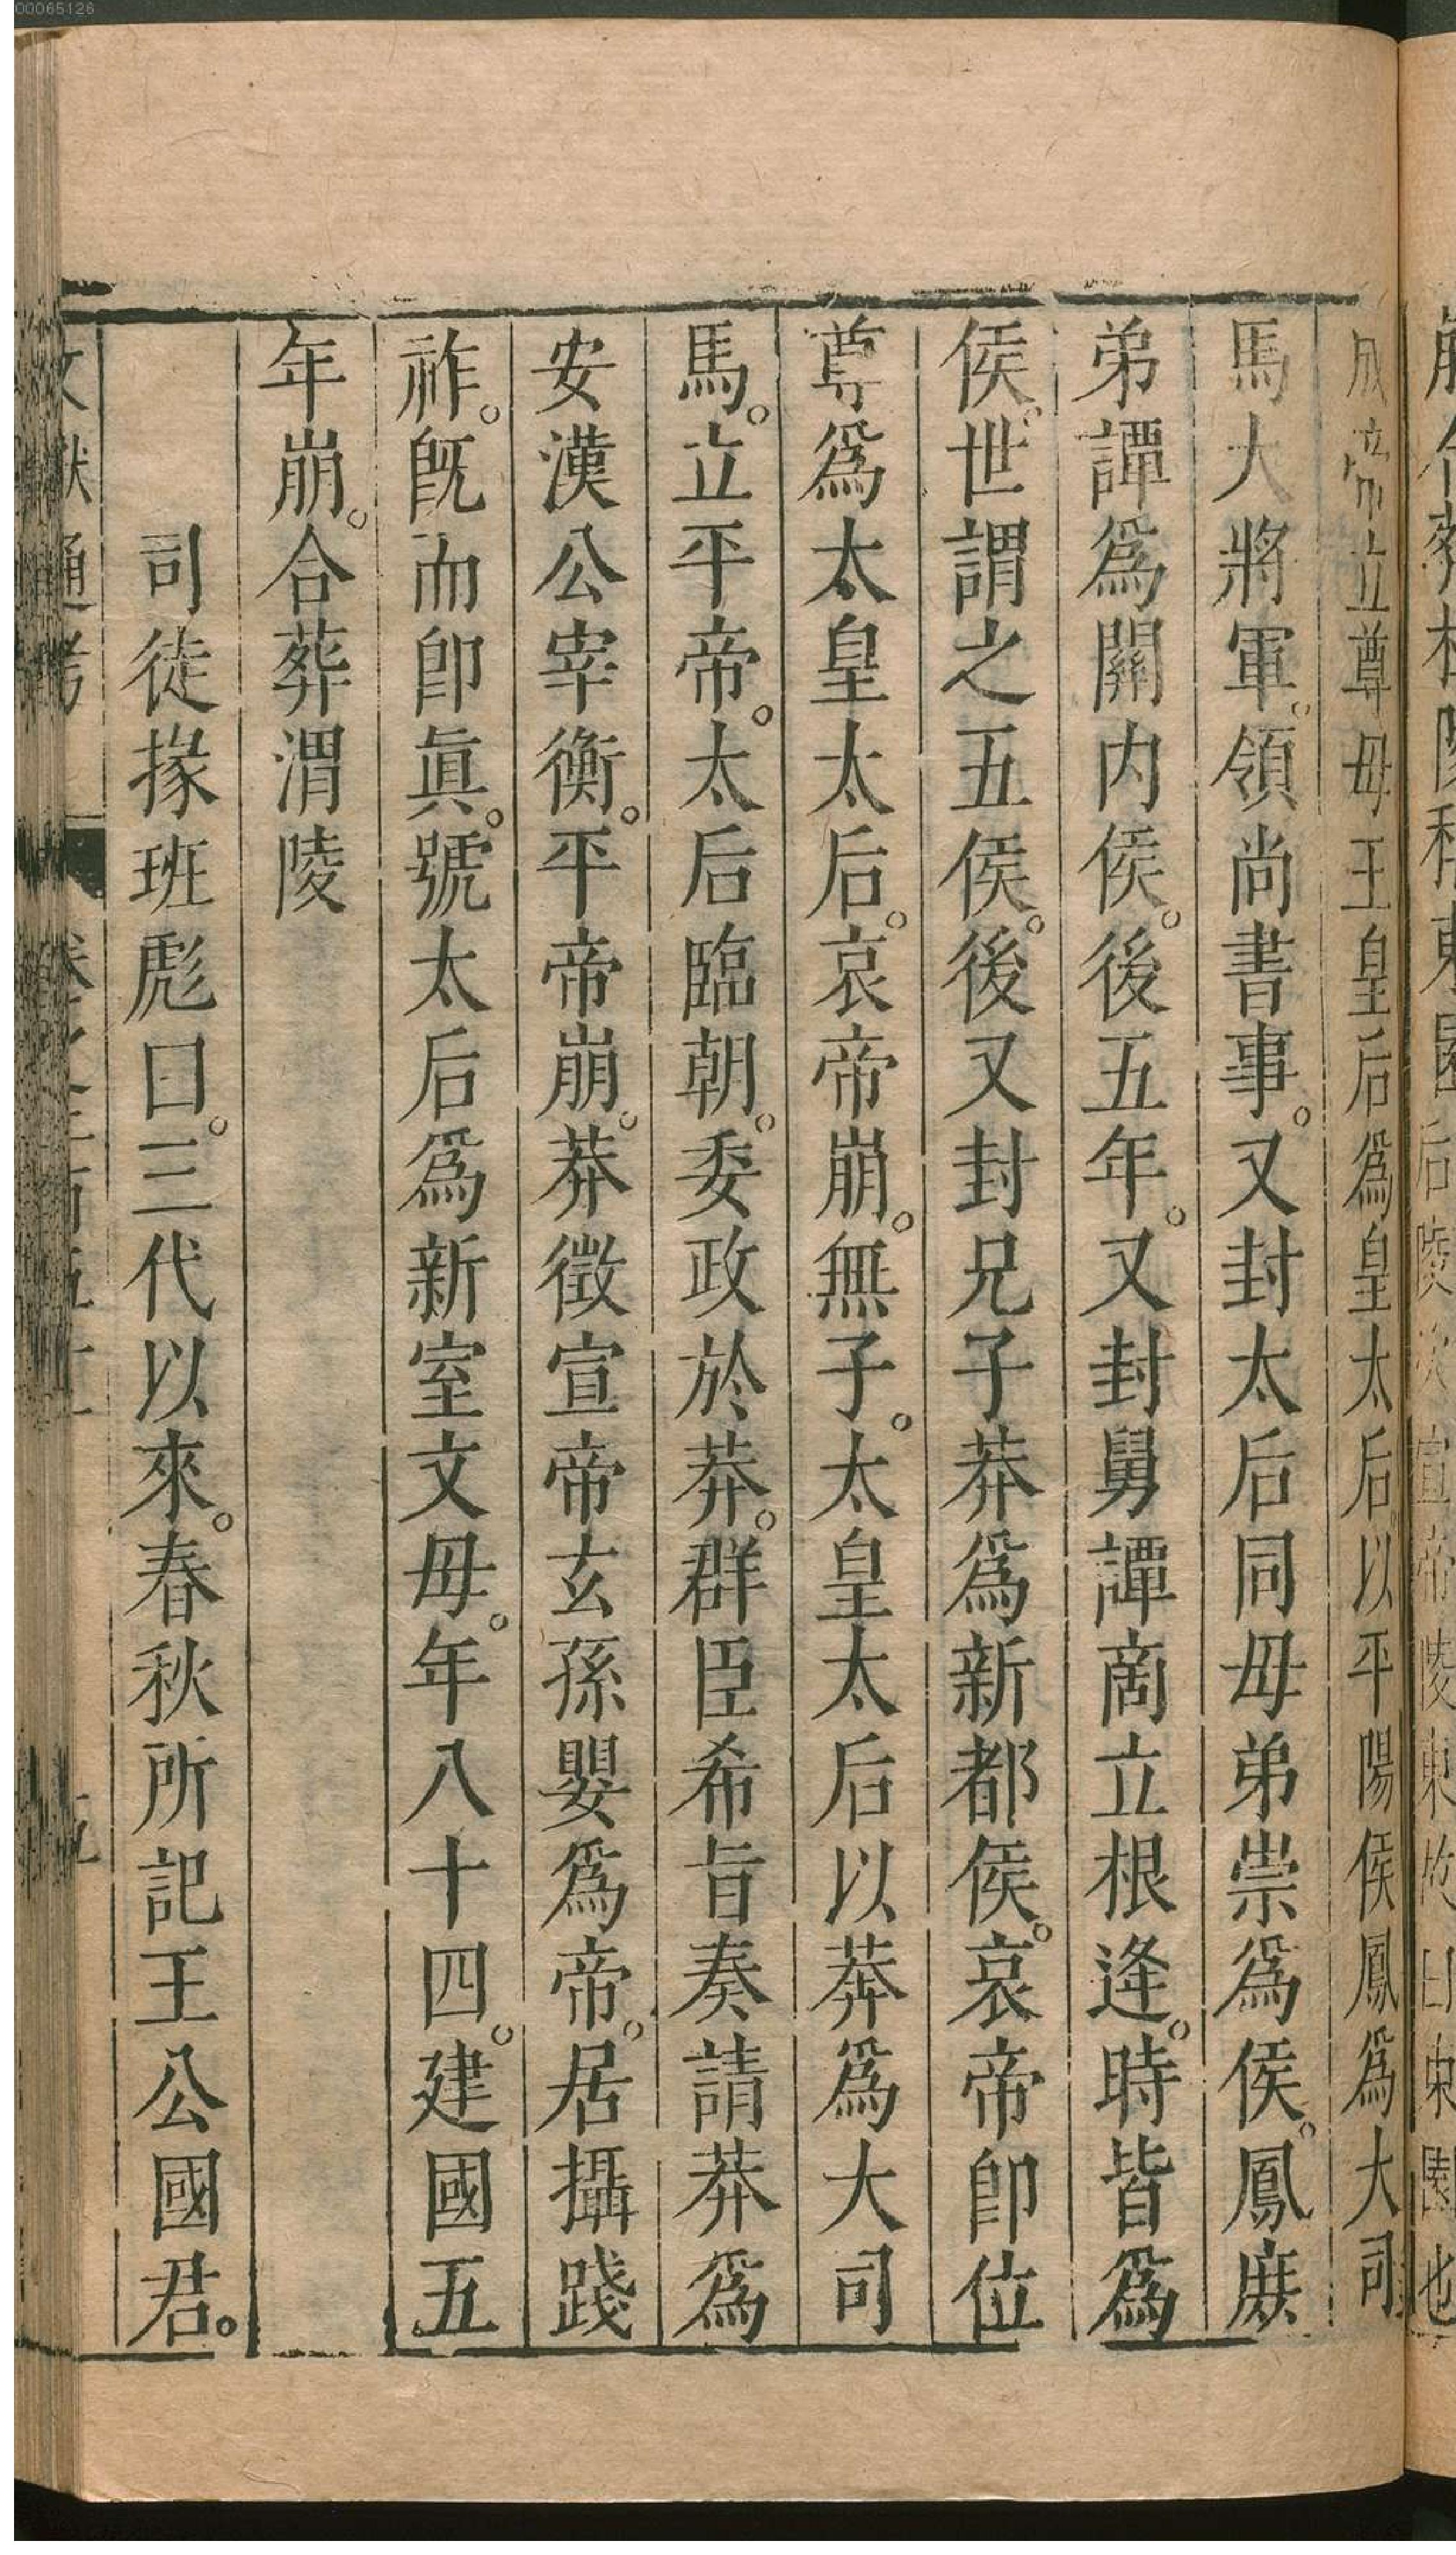 成帝立尊毋王皇后爲皇太后。以平陽侯鳳爲大司
馬大將軍。領尚書事。又封太后同毋弟崇爲侯。鳳庶
弟譚爲關内侯。後五年。又封舅譚商立根逄。時皆爲
侯。世謂之五侯。後又封兄子莽爲新都侯。哀帝卽位
尊爲太皇太后。哀帝崩。無子。太皇太后以莽爲大司
馬。立平帝。太后臨朝。委政於莽。群臣希旨奏請莽爲
安漢公宰衡。平帝崩。莽徵宣帝玄孫嬰爲帝。居攝踐
祚。旣而卽眞。號太后爲新室文毋。年八十四。建國五
年崩。合葬渭陵
司徒掾班彪曰。三代以來。春秋所記王公國君。
00065126